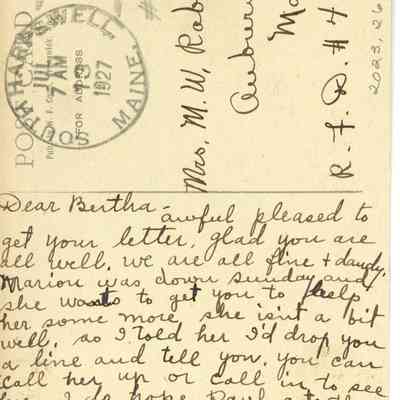 SOUTH HARPSWELL
MAINE.
JUL 13
7 AM
1927
POST CARD
FOR ADDRESS
Mrs. M. W. Rob
Auburn
Ma
R-F.D.#4
2023.26
Dear Bertha - awful pleased to
get your letter, glad you are
all well, we are all fine + dandy.
Marion was down Sunday and
she wants to get you to help
her some more she isn't a bit
well, so I told her I'd drop you
a line and tell you, you can
call her up or call in to see
her I do hope Paul